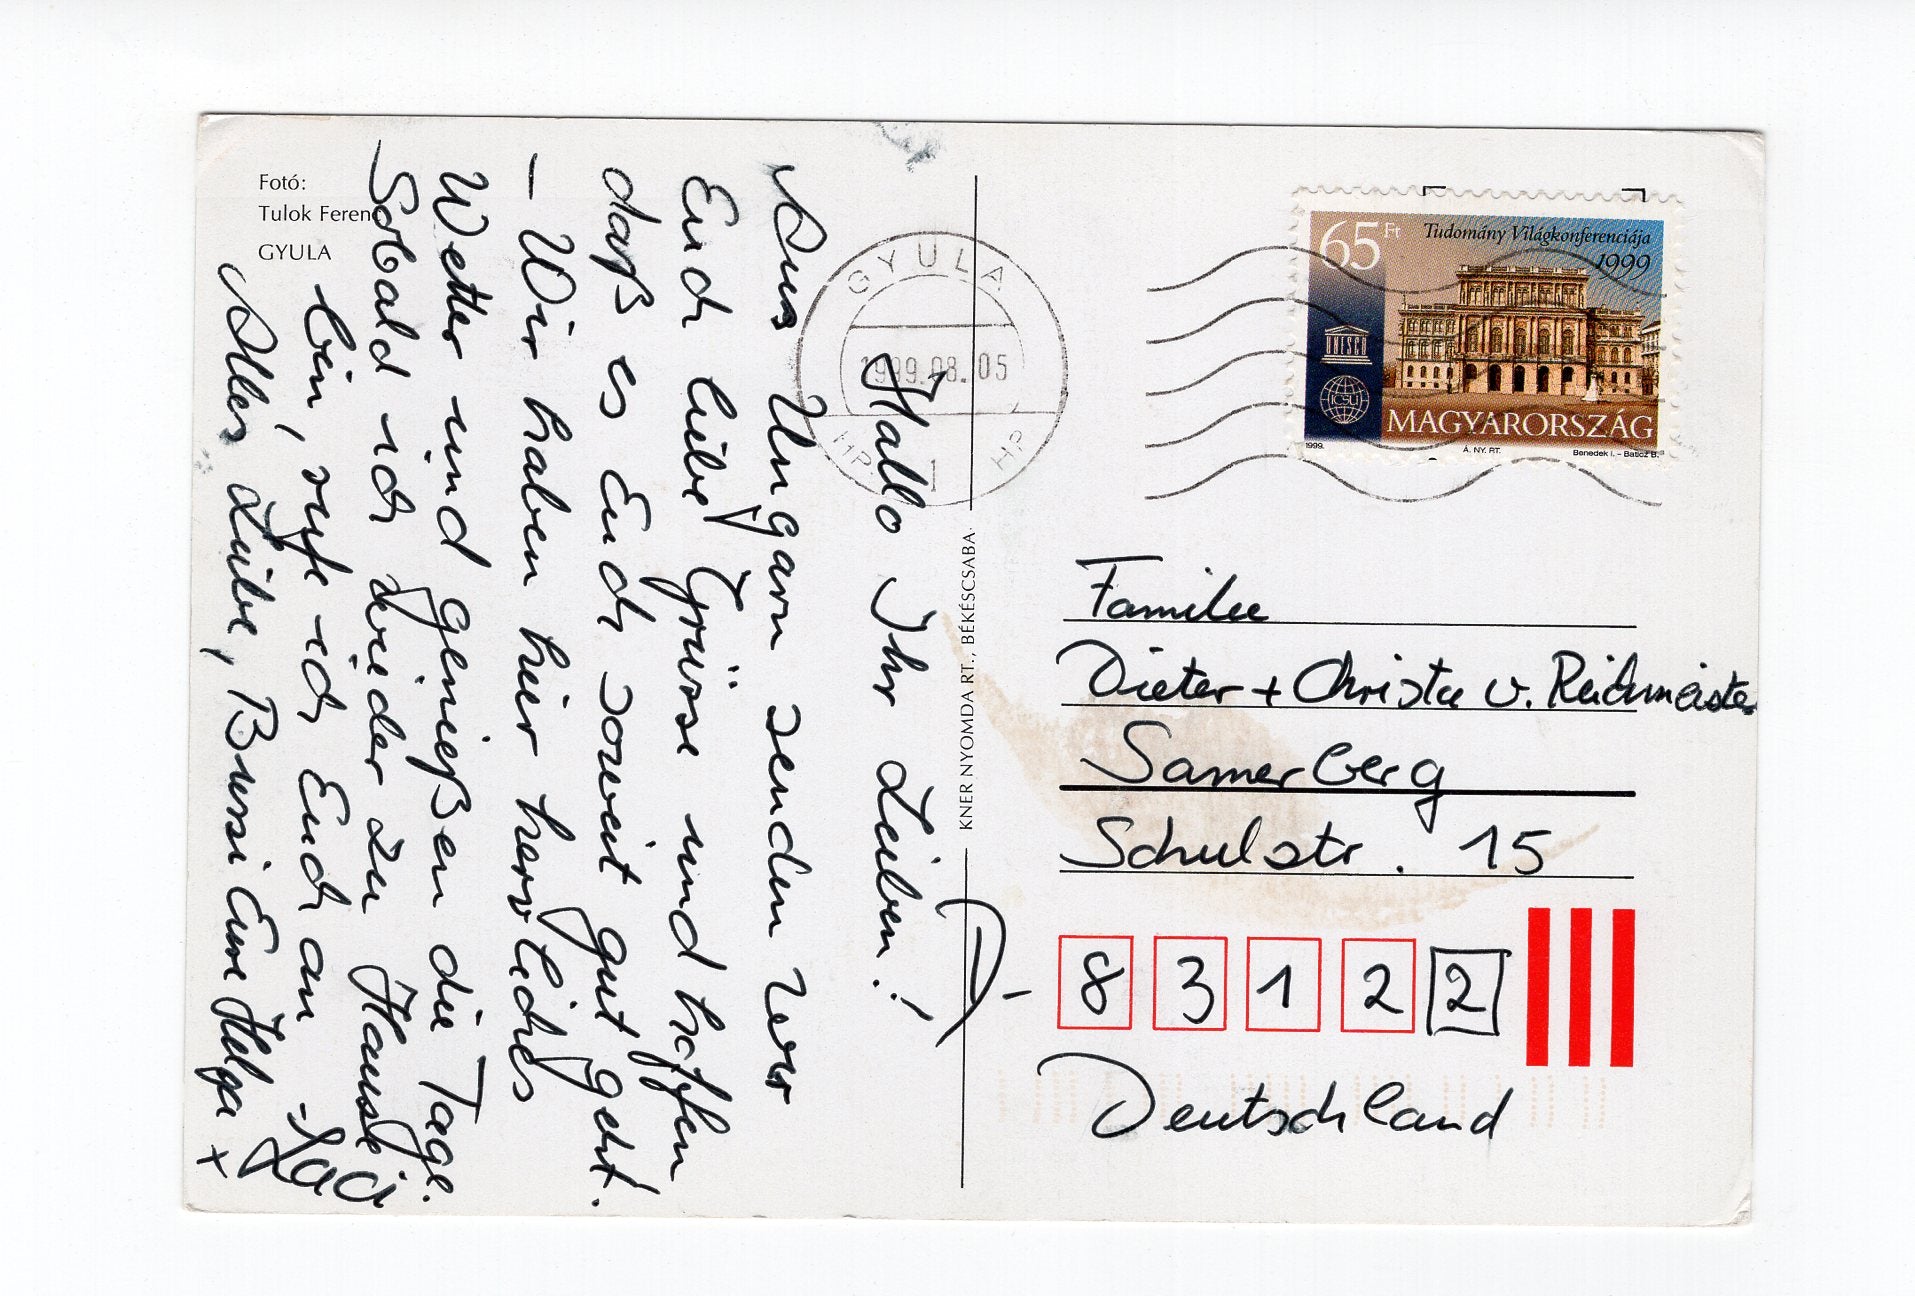 Fotó:
Tulok Ferenc
GYULA
Hallo Ihr Lieben!
Aus Ungarn senden wir
Euch liebe Grüsse und hoffen
daß es Euch soweit gut geht.
– Wir haben hier herrliches
Wetter und genießen die Tage.
Sobald ich wieder zu Hause
bin, rufe ich Euch an
Alles Liebe, Bussi Eure Helga +
Laci
KNER NYOMDA RT., BÉKÉSCSABA
GYULA
1999.08.05
HP 1 HP
65 Ft
Tudomány Világkonferenciája
1999
UNESCO
ICSU
MAGYARORSZÁG
1999.
Á. NY. RT.
Benedek I. – Baticz B.
Familie
Dieter + Christa v. Reichmeister
Samerberg
Schulstr. 15
D-
8 3 1 2 2
Deutschland